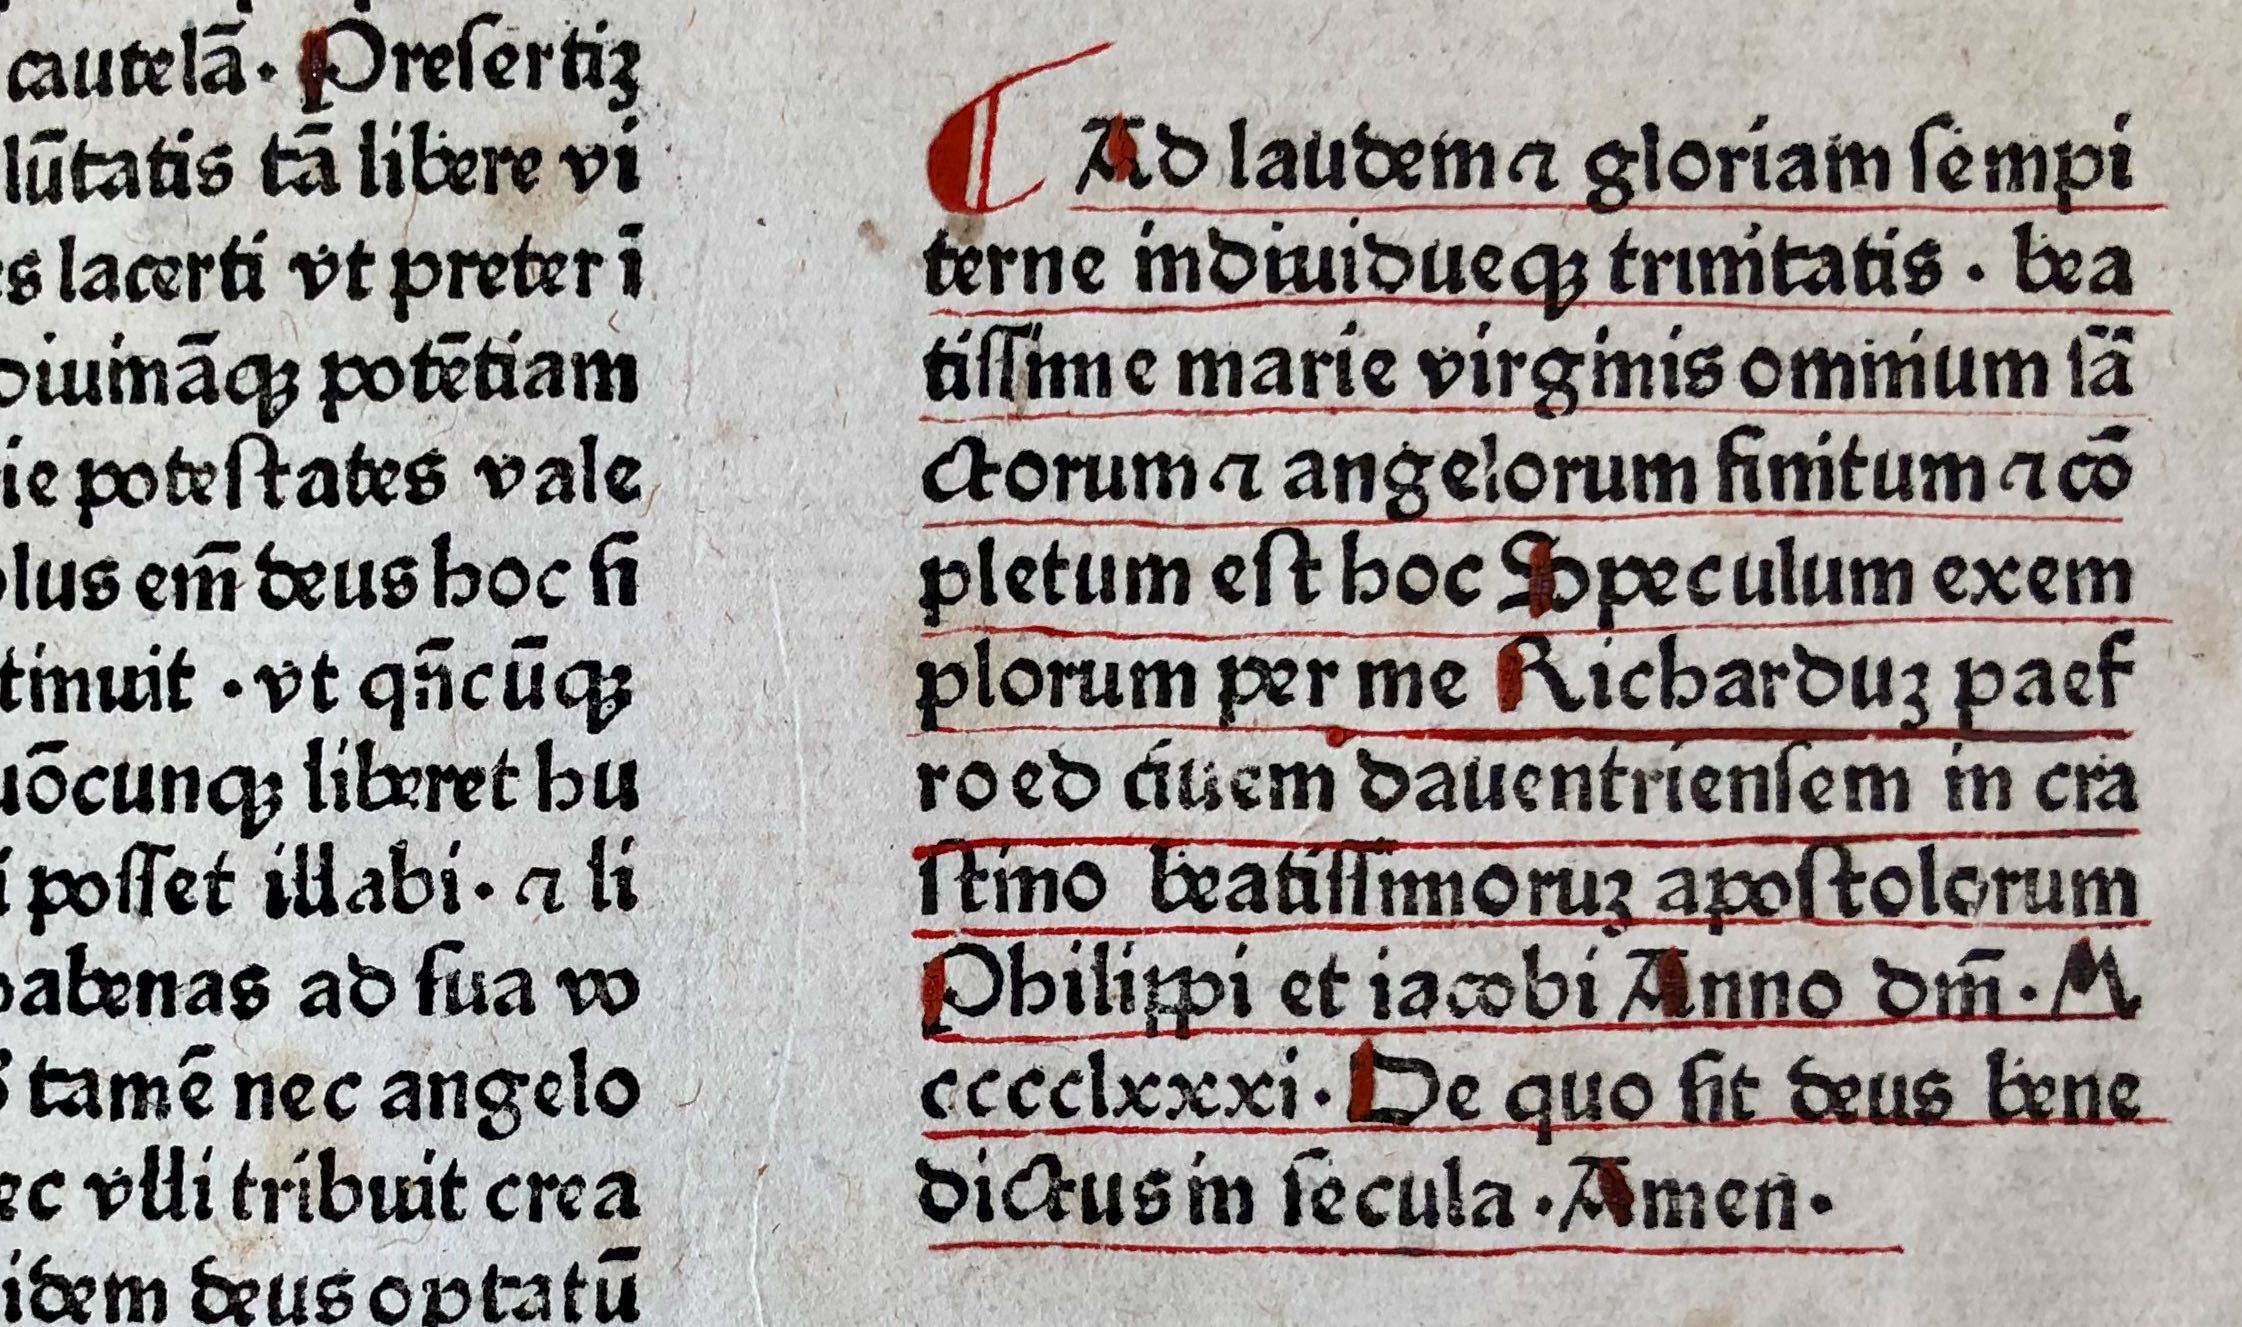 cautelā. Preſertiꝫ
lūtatis tā libere vi
es lacerti vt preter ī
diuināqꝫ potētiam
ie poteſtates vale
olus em̄ deus hoc ſi
tinuit . vt qn̄cūqꝫ
uōcunqꝫ liberet hu
i poſſet illabi. ⁊ li
habenas ad ſua vo
tamē nec angelo
ec vlli tribuit crea
idem deus optatū
Ad laudem ⁊ gloriam ſempi
terne indiuidueqꝫ trinitatis . bea
tiſſime marie virginis omnium ſā
ctorum ⁊ angelorum finitum ⁊ cō
pletum eſt hoc Speculum exem
plorum per me Richarduꝫ paef
roed ciuem dauentrienſem in cra
ſtino beatiſſimoruꝫ apoſtolorum
Philippi et iacobi Anno dm̄. M
cccclxxxi. De quo ſit deus bene
dictus in ſecula . Amen.